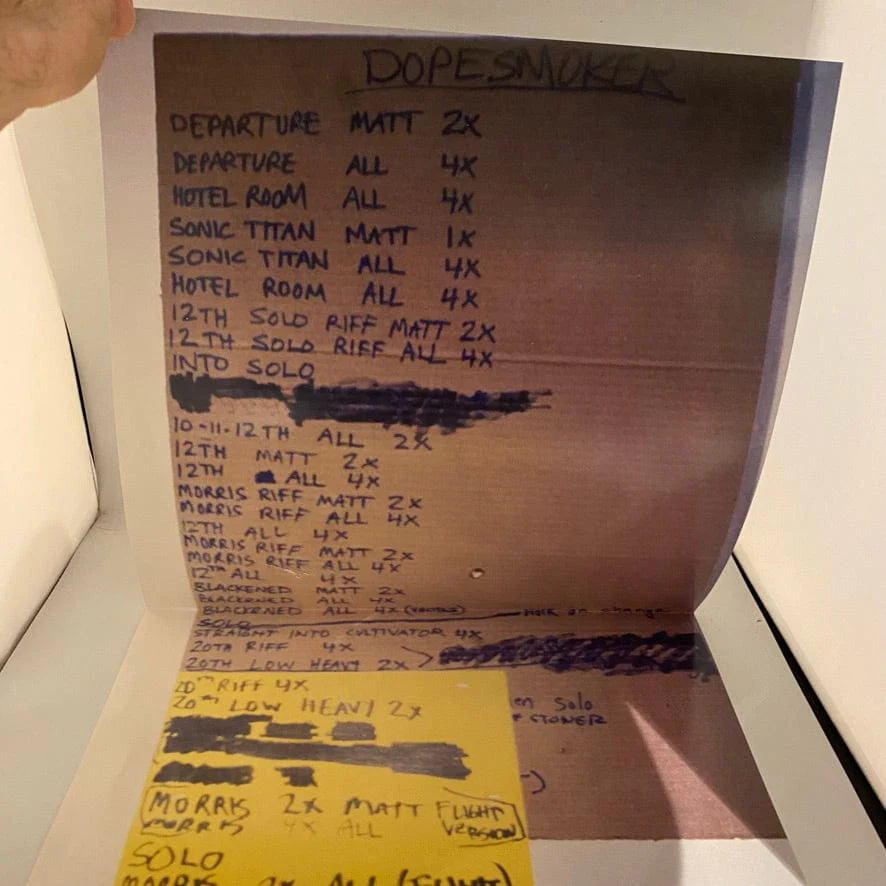 DOPESMOKER
DEPARTURE MATT 2X
DEPARTURE ALL 4X
HOTEL ROOM ALL 4X
SONIC TITAN MATT 1X
SONIC TITAN ALL 4X
HOTEL ROOM ALL 4X
12TH SOLO RIFF MATT 2X
12TH SOLO RIFF ALL 4X
INTO SOLO
10-11-12TH ALL 2X
12TH MATT 2X
12TH ALL 4X
MORRIS RIFF MATT 2X
MORRIS RIFF ALL 4X
12TH ALL 4X
MORRIS RIFF MATT 2X
MORRIS RIFF ALL 4X
12TH ALL 4X
BLACKENED MATT 2X
BLACKENED ALL 4X
BLACKENED ALL 4X (VOCALS) on change
SOLO
STRAIGHT INTO CULTIVATOR 4X
20TH RIFF 4X
20TH LOW HEAVY 2X
20TH RIFF 4X
20TH LOW HEAVY 2X
en Solo
STONER
MORRIS 2X MATT FLIGHT VERSION
MORRIS 4X ALL
SOLO
MORRIS 2X ALL (FLIGHT)